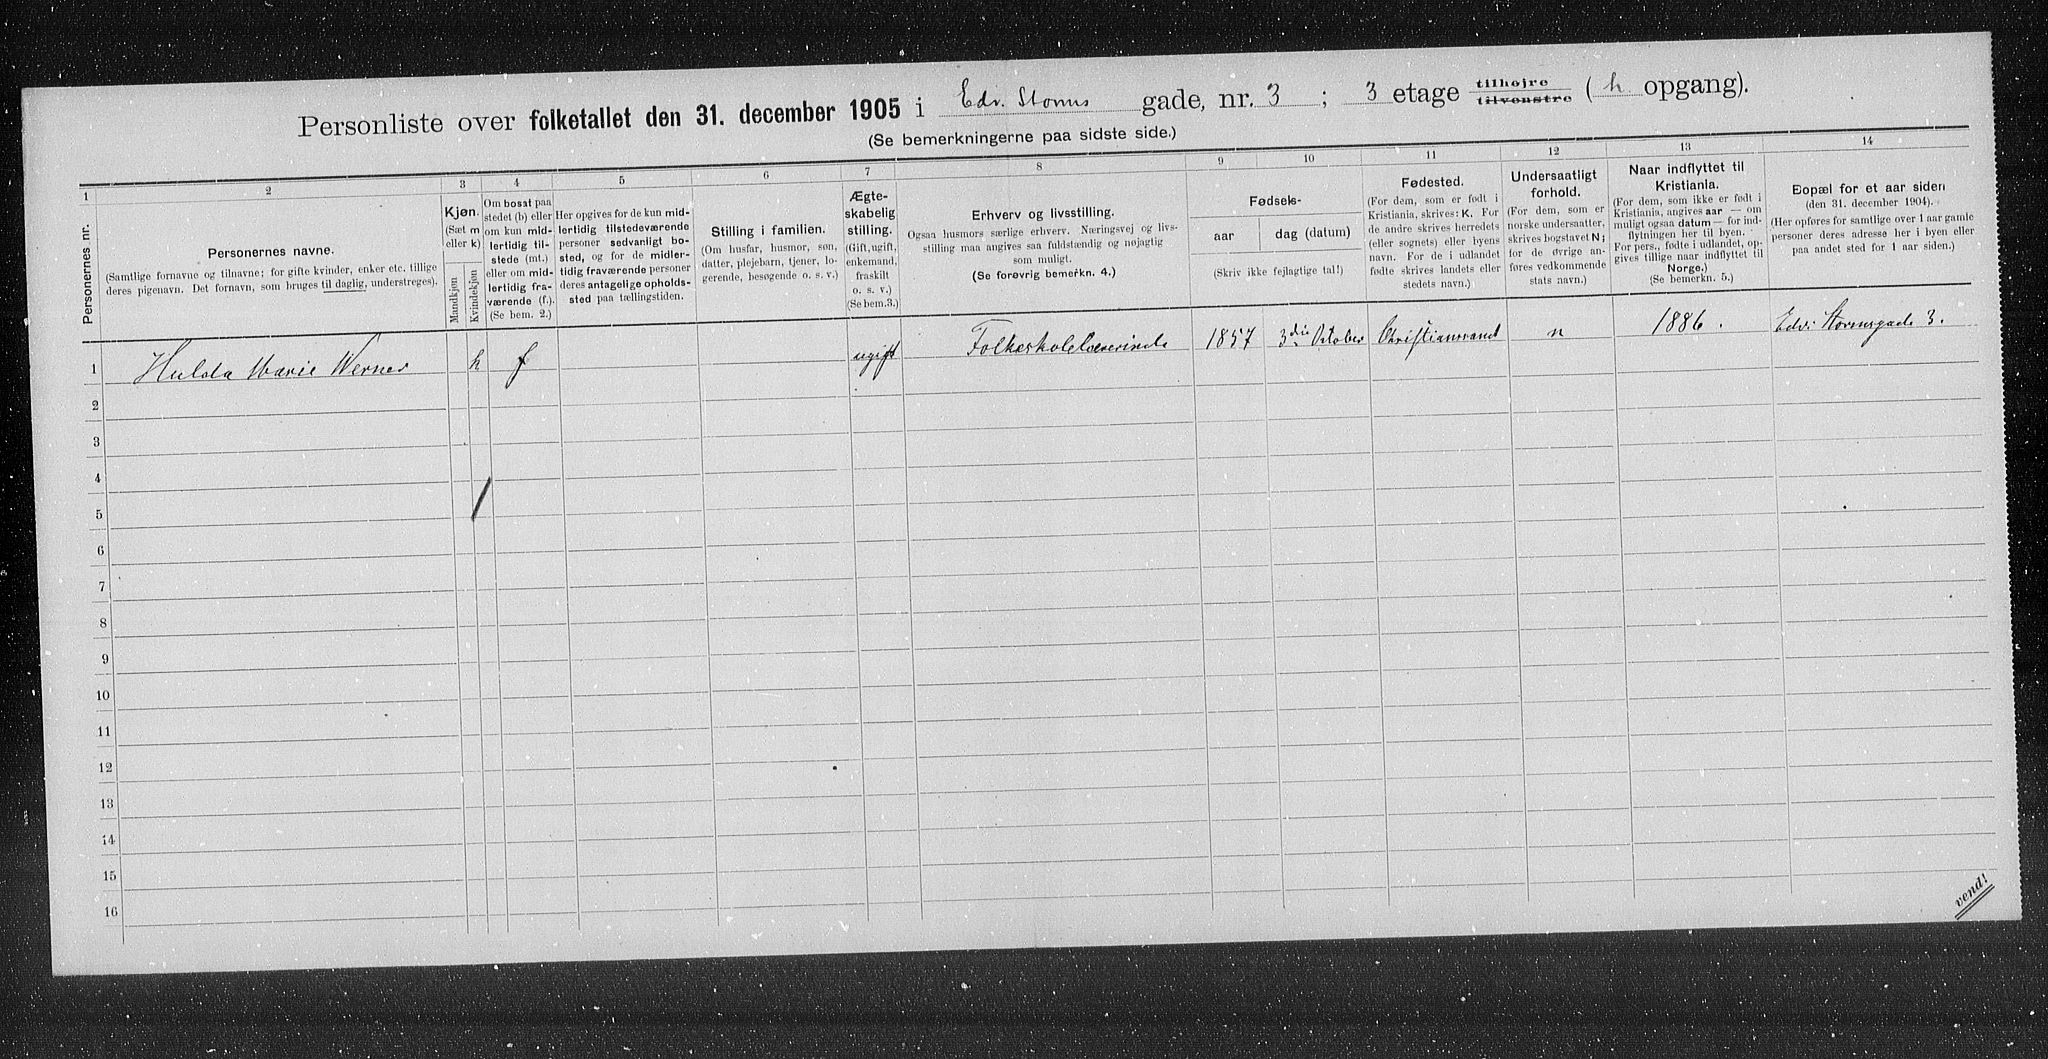 Personliste over folketallet den 31. december 1905 i Edv. Storms gade, nr. 3 ; 3 etage tilhøjre tilvenstre ( h opgang).
(Se bemerkningerne paa sidste side.)
1 2 3 4 5 6 7 8 9 10 11 12 13 14
Personernes nr.
Personernes navne.
(Samtlige fornavne og tilnavne; for gifte kvinder, enker etc. tillige
deres pigenavn. Det fornavn, som bruges til daglig, understreges).
Kjøn.
(Sæt m
eller k)
Mandkjøn
Kvindekjøn
Om bosat paa
stedet (b) eller
om kun mid-
lertidig til-
stede (mt.)
eller om mid-
lertidig fra-
værende (f.).
(Se bem. 2.)
Her opgives for de kun mid-
lertidig tilstedeværende
personer sedvanlig bo-
sted, og for de midler-
tidig fraværende personer
deres antagelige opholds-
sted paa tællingstiden.
Stilling i familien.
(Om husfar, husmor, søn,
datter, plejebarn, tjener, lo-
gerende, besøgende o. s. v.)
Ægte-
skabelig
stilling.
(Gift, ugift,
enkemand,
fraskilt
o. s. v.)
(Se bem.3.)
Erhverv og livsstilling.
Ogsaa husmors særlige erhverv. Næringsvej og livs-
stilling maa angives saa fuldstændig og nøjagtig
som muligt.
(Se forøvrig bemerkn. 4.)
Fødsels-
aar
dag (datum)
(Skriv ikke fejlagtige tal!)
Fødested.
(For dem, som er født i
Kristiania, skrives: K. For
de andre skrives herredets
(eller sognets) eller byens
navn. For de i udlandet
fødte skrives landets eller
stedets navn.)
Undersaatligt
forhold.
(For dem, som er
norske undersaatter,
skrives bogstavet N;
for de øvrige an-
føres vedkommende
stats navn.)
Naar indflyttet til
Kristiania.
(For dem, som ikke er født i
Kristiania, angives aar — om
muligt ogsaa datum — for ind-
flytningen her til byen.
For pers., fødte i udlandet, op-
gives tillige naar indflyttet til
Norge.)
(Se bemerkn. 5.)
Bopæl for et aar siden
(den 31. december 1904).
(Her opføres for samtlige over 1 aar gamle
personer deres adresse her i byen eller
paa andet sted for 1 aar siden.)
1 Hulda Marie Werner k f ugift Folkeskolelærerinde 1857 3die Oktober Christianssand n 1886. Edv. Stormsgade 3.
2
3
4
5
6
7
8
9
10
11
12
13
14
15
16
vend!